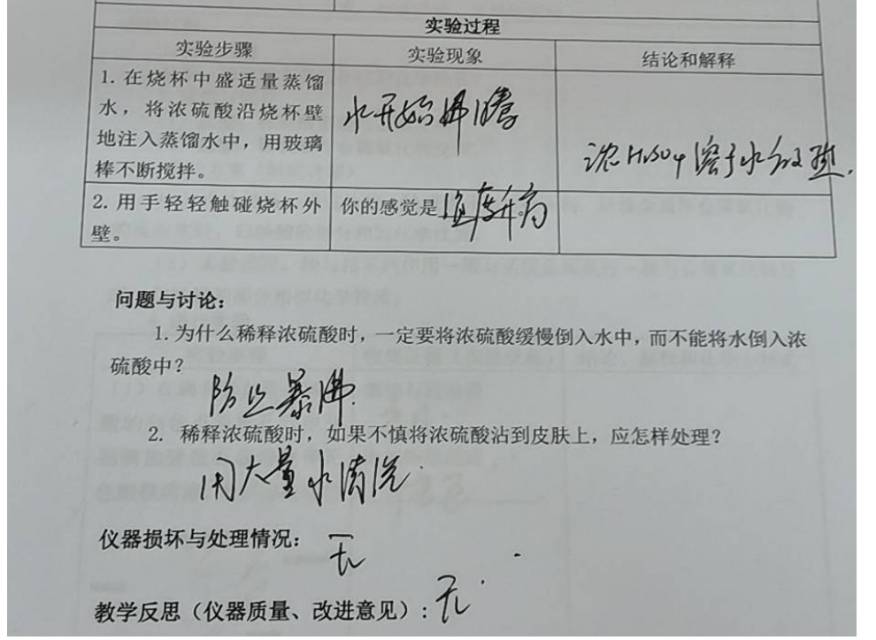 实验过程
实验步骤 实验现象 结论和解释
1. 在烧杯中盛适量蒸馏
水，将浓硫酸沿烧杯壁
地注入蒸馏水中，用玻璃
棒不断搅拌。
水开始沸腾
浓H₂SO₄溶于水放热.
2. 用手轻轻触碰烧杯外
壁。
你的感觉是温度升高
问题与讨论：
1. 为什么稀释浓硫酸时，一定要将浓硫酸缓慢倒入水中，而不能将水倒入浓
硫酸中？
防止暴沸.
2. 稀释浓硫酸时，如果不慎将浓硫酸沾到皮肤上，应怎样处理？
用大量水清洗.
仪器损坏与处理情况：无
教学反思（仪器质量、改进意见）：无.